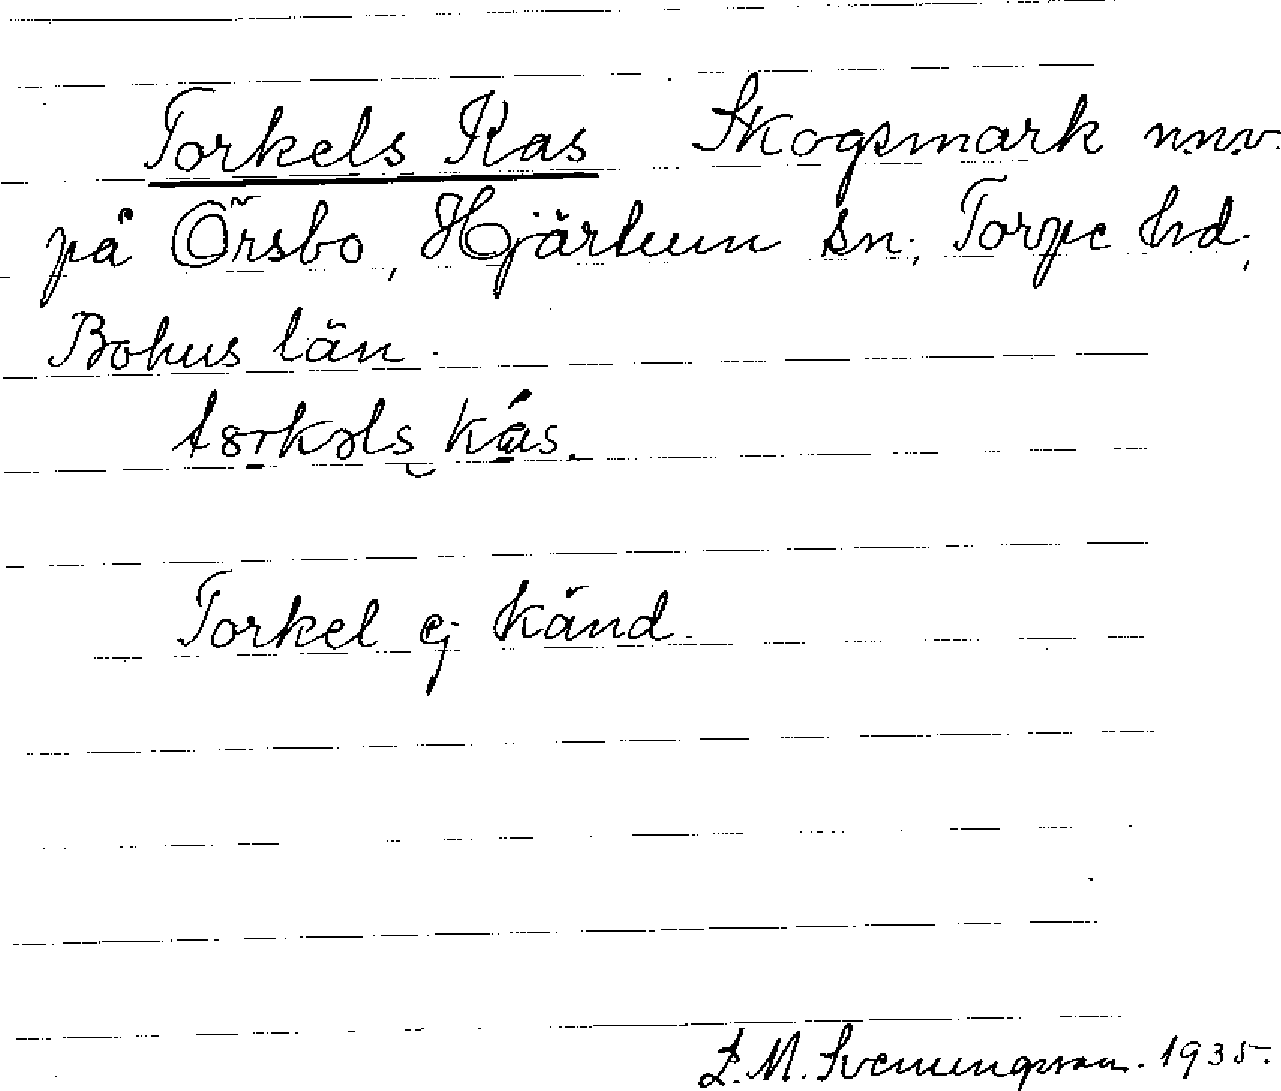 Torkels Kas Skogsmark nnv.
på Örsbo, Hjärtum sn; Torpe hd;
Bohus län.
Torkel ej känd.
L. M. Svenungsson. 1935.